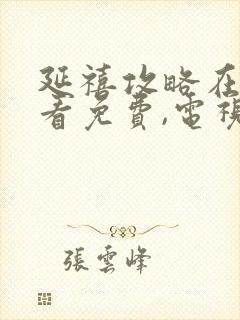 延禧攻略在
看免費,電視
張雲峰